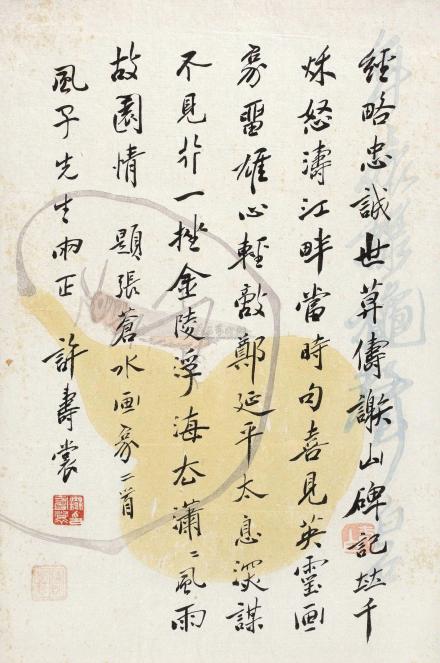 經略忠誠世莫儔謝山碑記垂千
秋怒濤江畔當時句喜見英靈画
象留雄心輕敵鄭延平太息深謀
不見行一挫金陵浮海去瀟〻風雨
故園情 題張蒼水画象二首
風子先生兩正 許壽裳